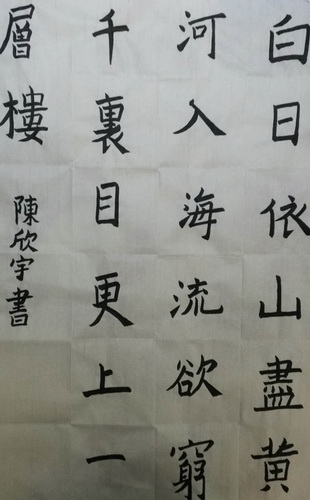 白日依山盡黃
河入海流欲窮
千裏目更上一
層樓
陳欣宇書